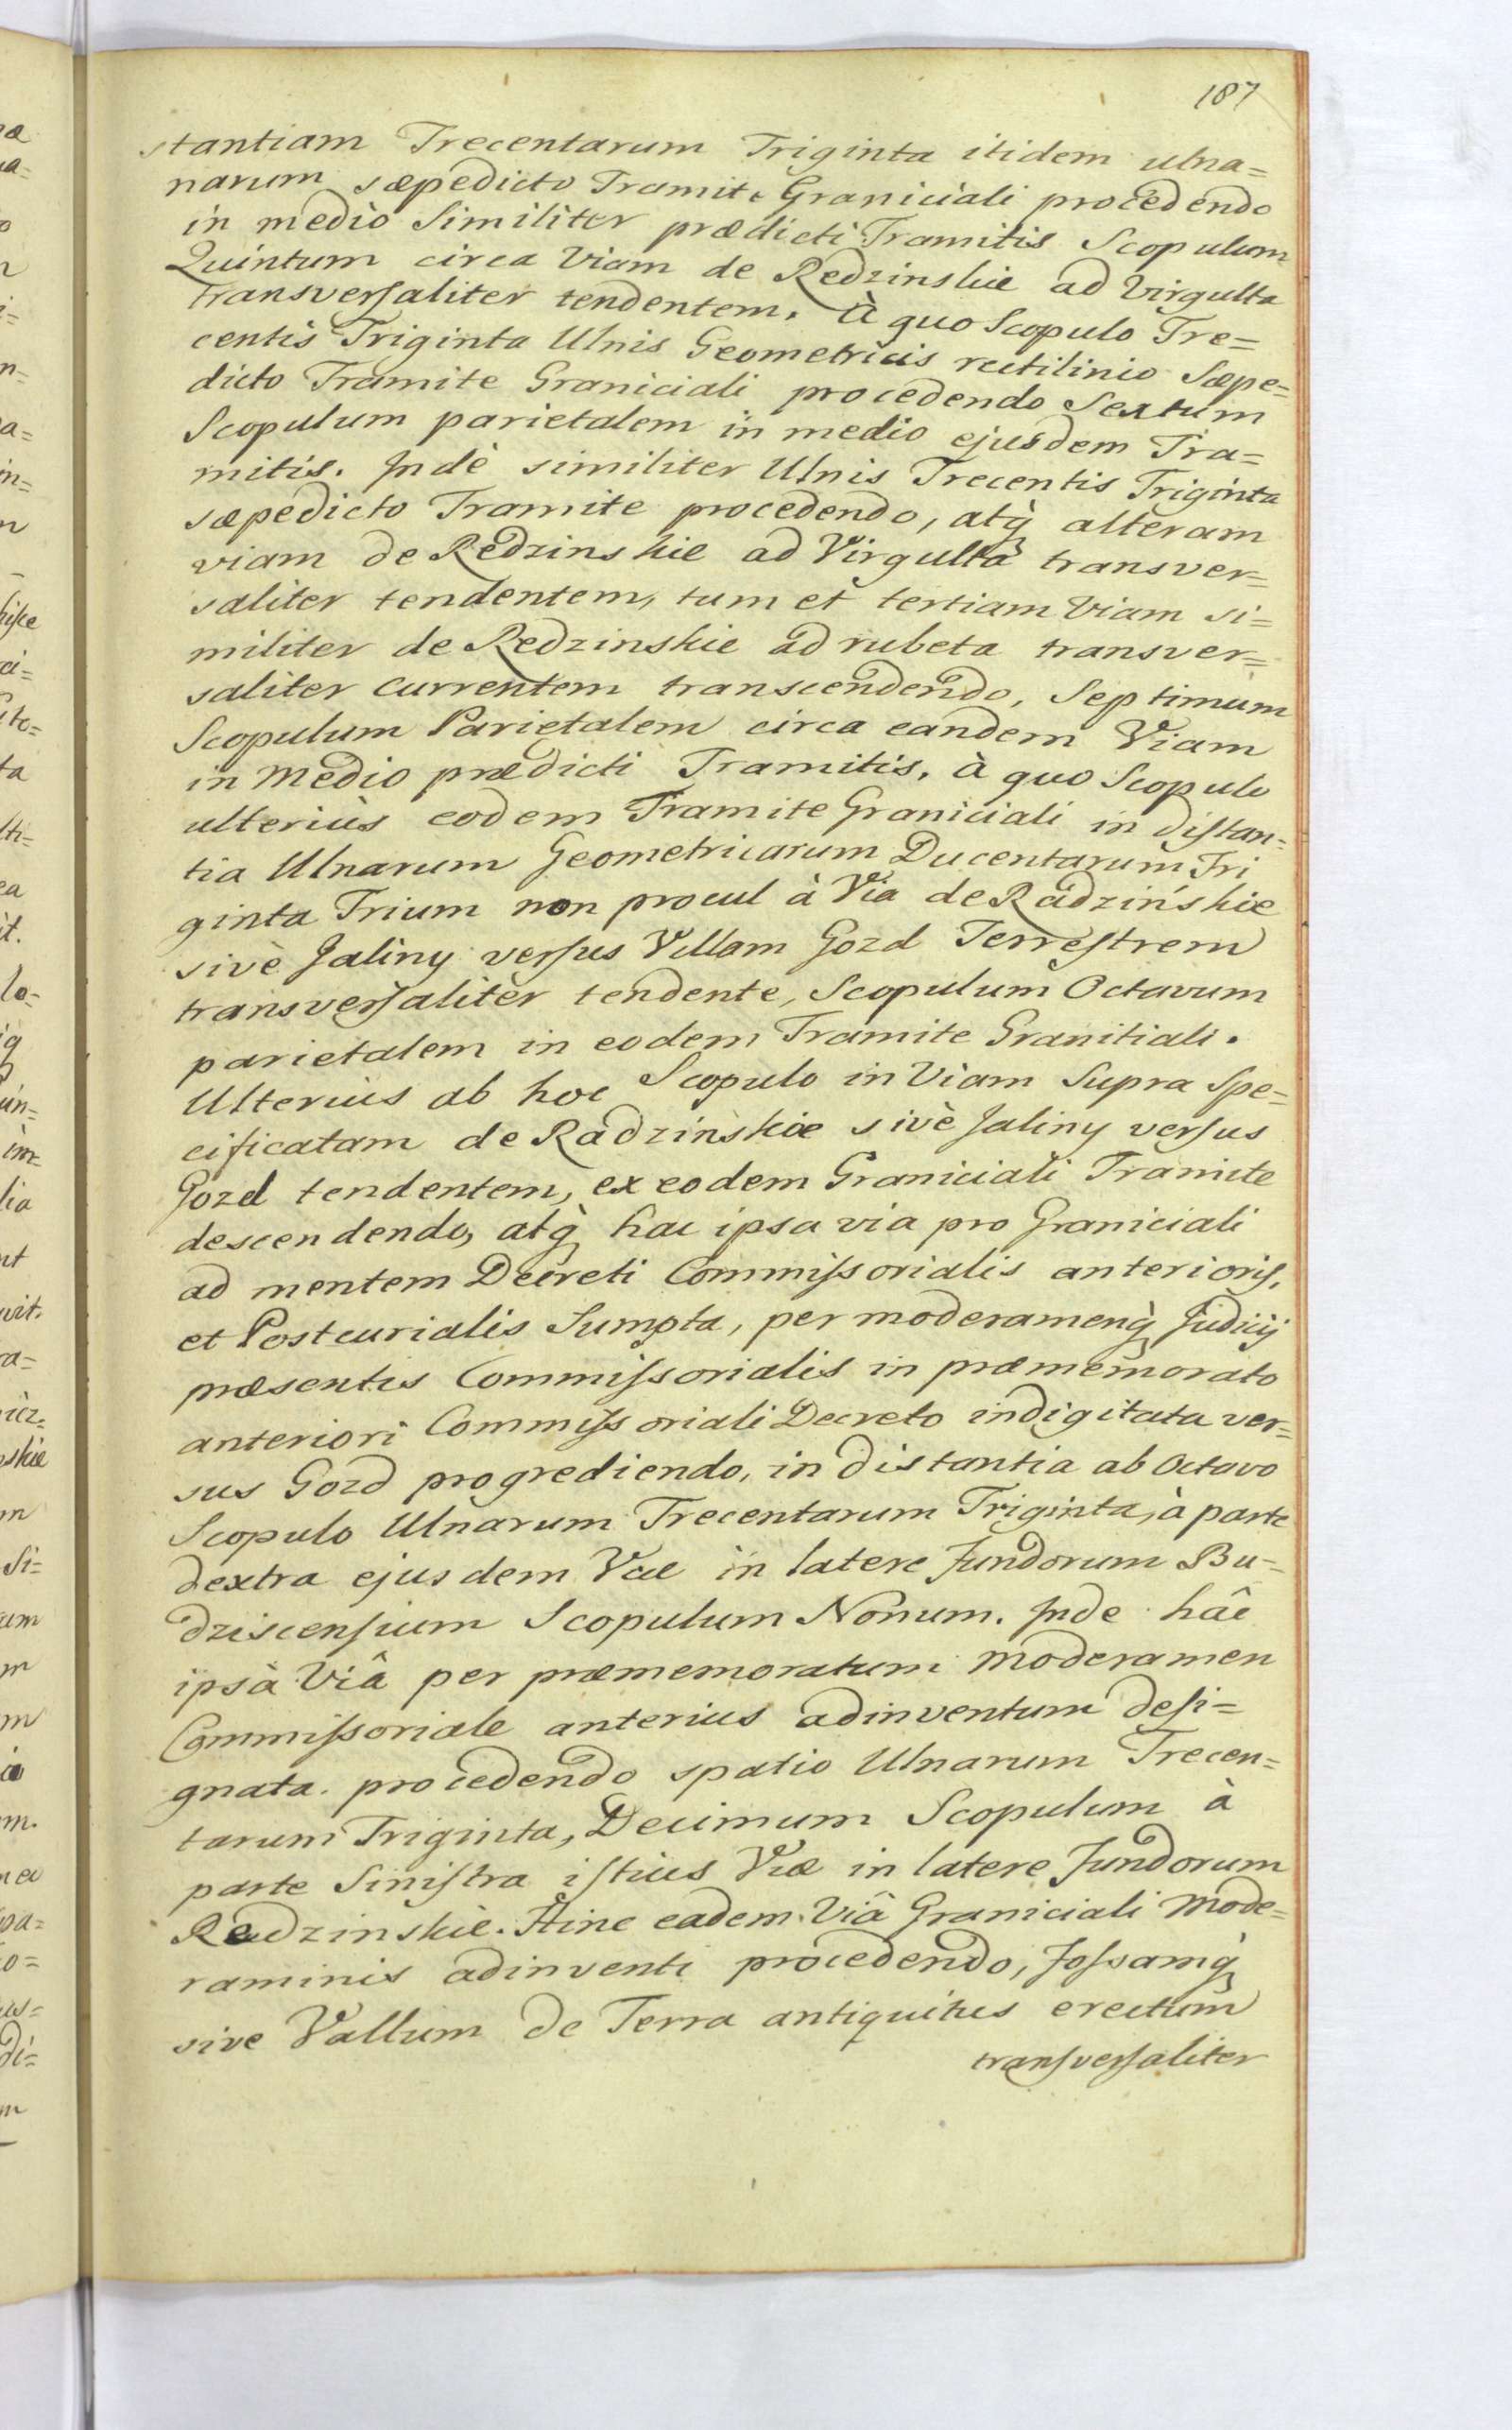 187
stantiam Trecentarum Triginta itidem ulna=
narum sæpedicto Tramite Graniciali procedendo
in medio Similiter prædicti Tramitis Scopulum
Quintum circa Viam de Redzinskie ad Virgulta
transversaliter tendentem. à quo Scopulo Tre=
centis Triginta Ulnis Geometricis rectilinio Sæpe=
dicto Tramite Graniciali procedendo Sextum
Scopulum parietalem in medio ejusdem Tra=
mitis. Indè similiter Ulnis Trecentis Triginta
sæpedicto Tramite procedendo, atq̀ alteram
viam de Redzinskie ad Virgulta transver=
saliter tendentem, tum et tertiam Viam si=
militer de Redzinskie ad rubeta transver=
saliter currentem transcendendo, Septimum
Scopulum Parietalem circa eandem Viam
in Medio prædicti Tramitis, à quo Scopulo
ulteriùs eodem Tramite Graniciali in distan=
tia Ulnarum Geometricarum Ducentarum Tri
ginta Trium non procul à Via de Radzińskie
sivè Jaliny versus Villam Gozd Terrestrem
transversalitèr tendente, Scopulum Octavum
parietalem in eodem Tramite Granitiali.
Ulterius ab hoc Scopulo in Viam Supra Spe=
cificatam de Radzinskie sivè Jaliny versus
Gozd tendentem, ex eodem Graniciali Tramite
descendendo, atq̀ hac ipsa via pro Graniciali
ad mentem Decreti Commissorialis anterioris,
et Postcurialis Sumpta, per moderamenq̀ Judicij
præsentis Commissorialis in præmemorato
anteriori Commissoriali Decreto indigitata ver=
sus Gozd progrediendo, in distantia ab Octavo
Scopulo Ulnarum Trecentarum Triginta, à parte
dextra ejusdem Væ in latere fundorum Bu=
dziscensium Scopulum Nonum. Inde hâc
ipsà Viâ per præmemoratum Moderamen
Commissoriale anterius adinventum desi=
gnata procedendo spatio Ulnarum Trecen=
tarum Triginta, Decimum Scopulum à
parte Sinistra istius Viæ in latere fundorum
Redzinskie. Hinc eadem Viâ Graniciali Mode=
raminis adinventi procedendo, fossamq̀
sive Vallum de Terra antiquitus erectum
transversaliter